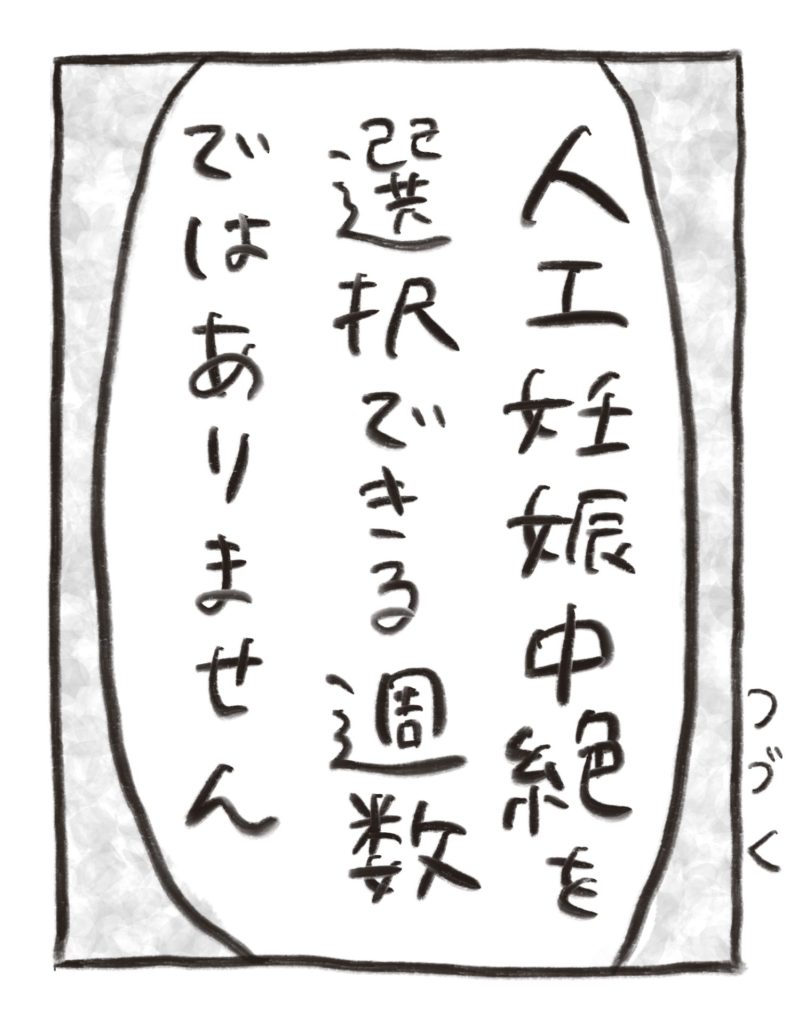 人工妊娠中絶を
選択できる週数
ではありません
つづく